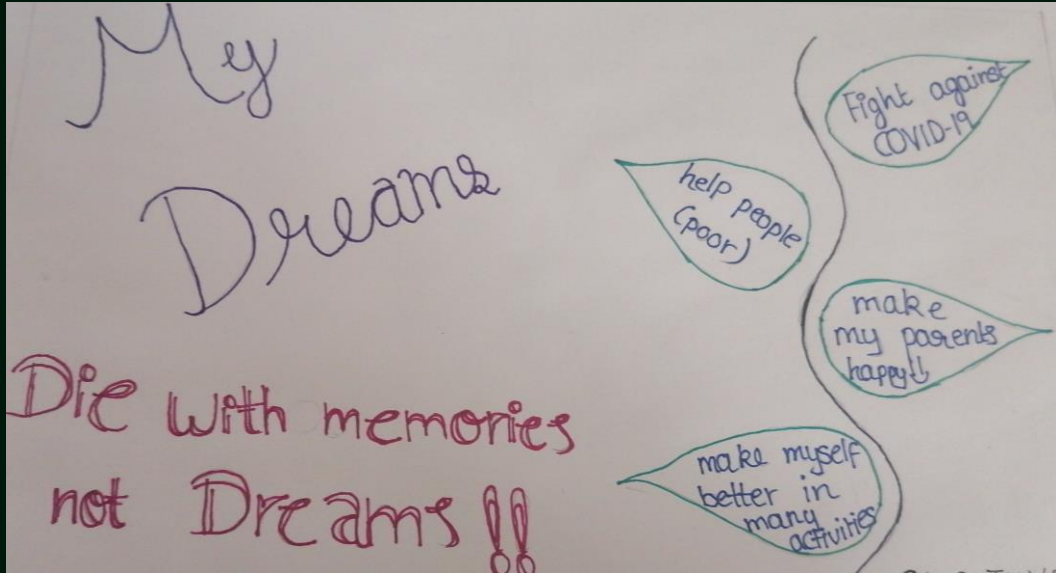 My
Dreams
Die with memories
not Dreams!!
Fight against
COVID-19
help people
(poor)
make
my parents
happy!!
make myself
better in
many
activities